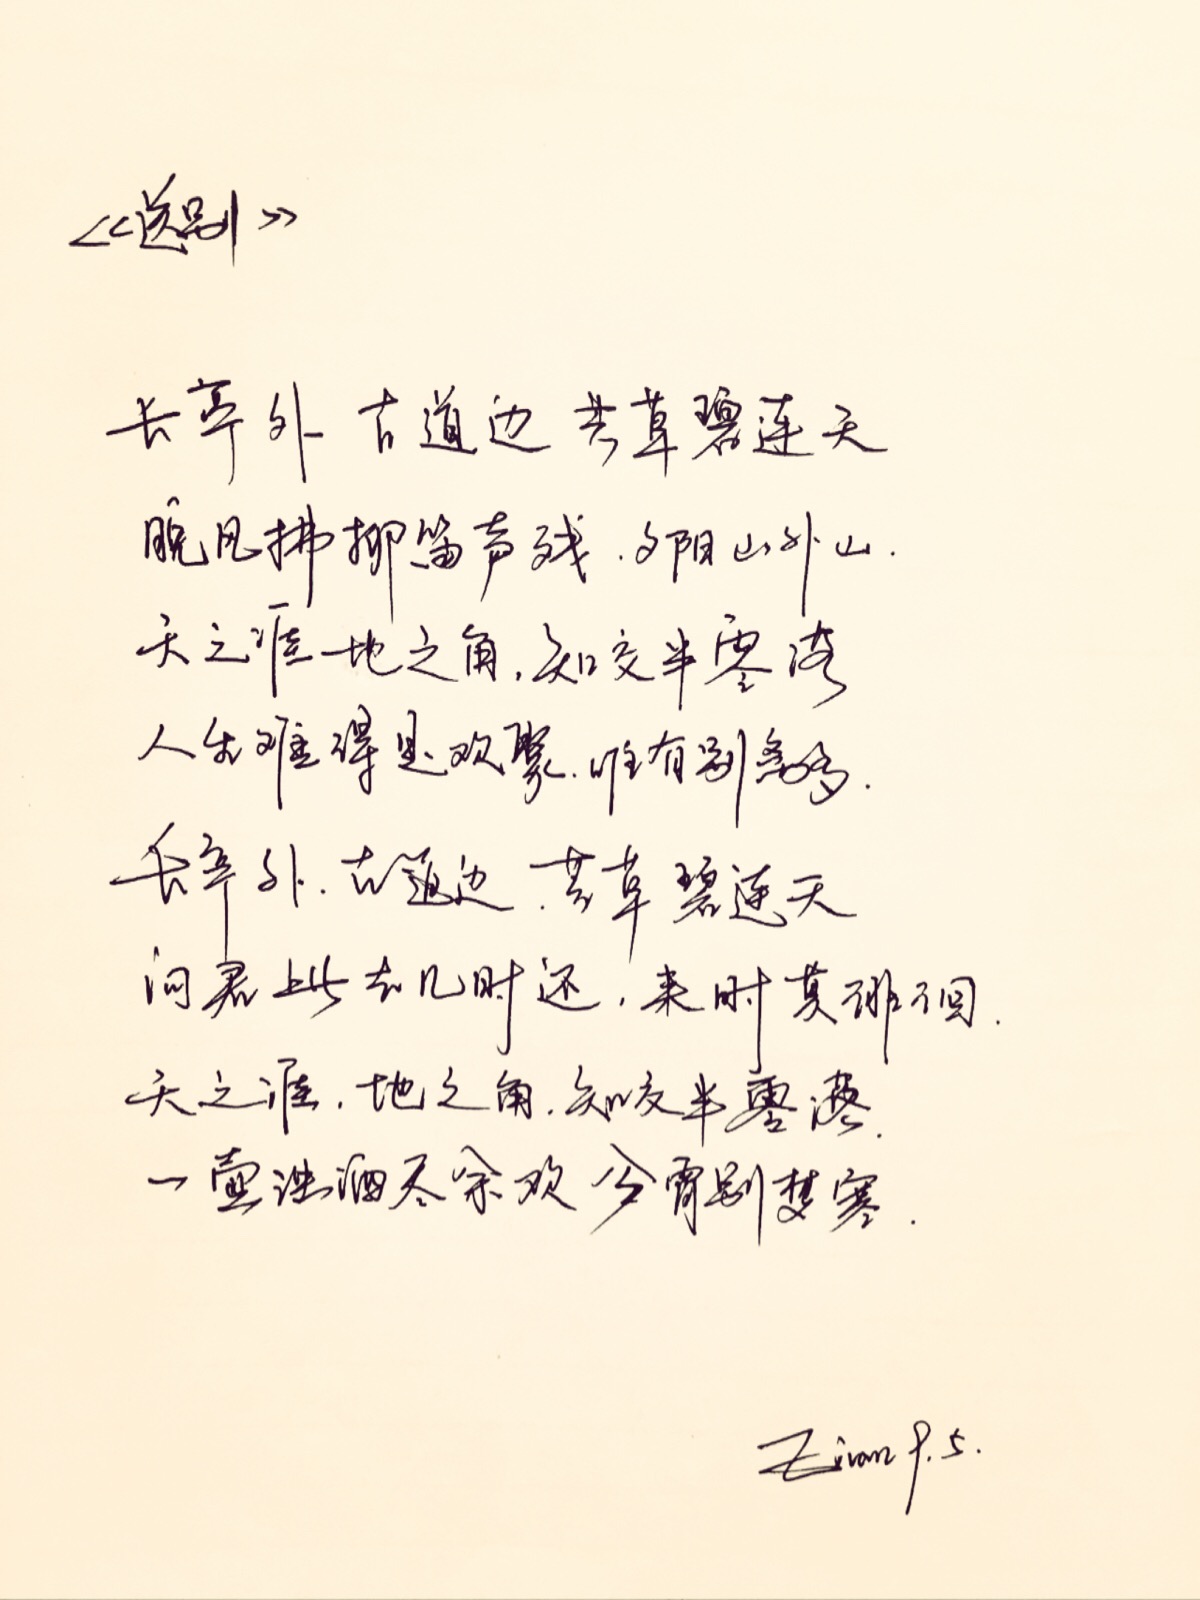 <<送别>>
长亭外 古道边 芳草碧连天
晚风拂柳笛声残.夕阳山外山.
天之涯 地之角,知交半零落
人生难得是欢聚.唯有别多.
长亭外.古道边.芳草碧连天
问君此去几时还,来时莫徘徊.
天之涯.地之角.知交半零落.
一壶浊酒尽余欢 今宵别梦寒.
9.5.